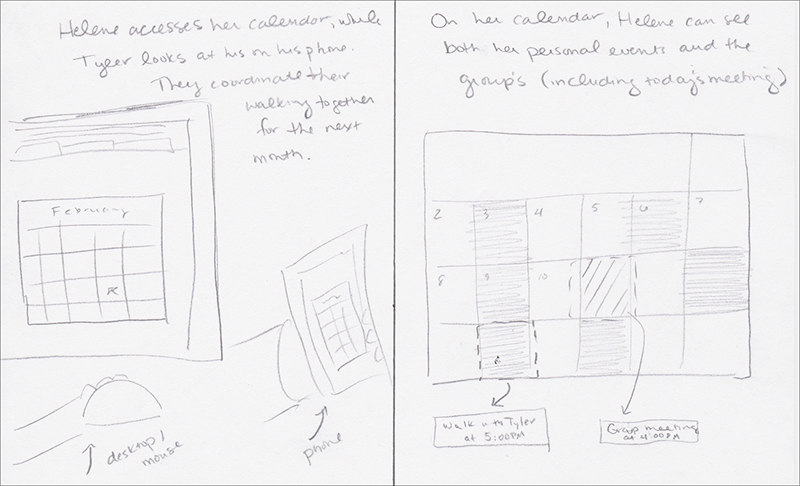 Helene accesses her calendar, while
Tyler looks at his on his phone.
They coordinate their
walking together
for the next
month.
February
desktop/
mouse
phone
On her calendar, Helene can see
both her personal events and the
group's (including today's meeting)
2 3 4 5 6 7
8 9 10
Walk with Tyler
at 5:00PM
Group meeting
at 4:00PM